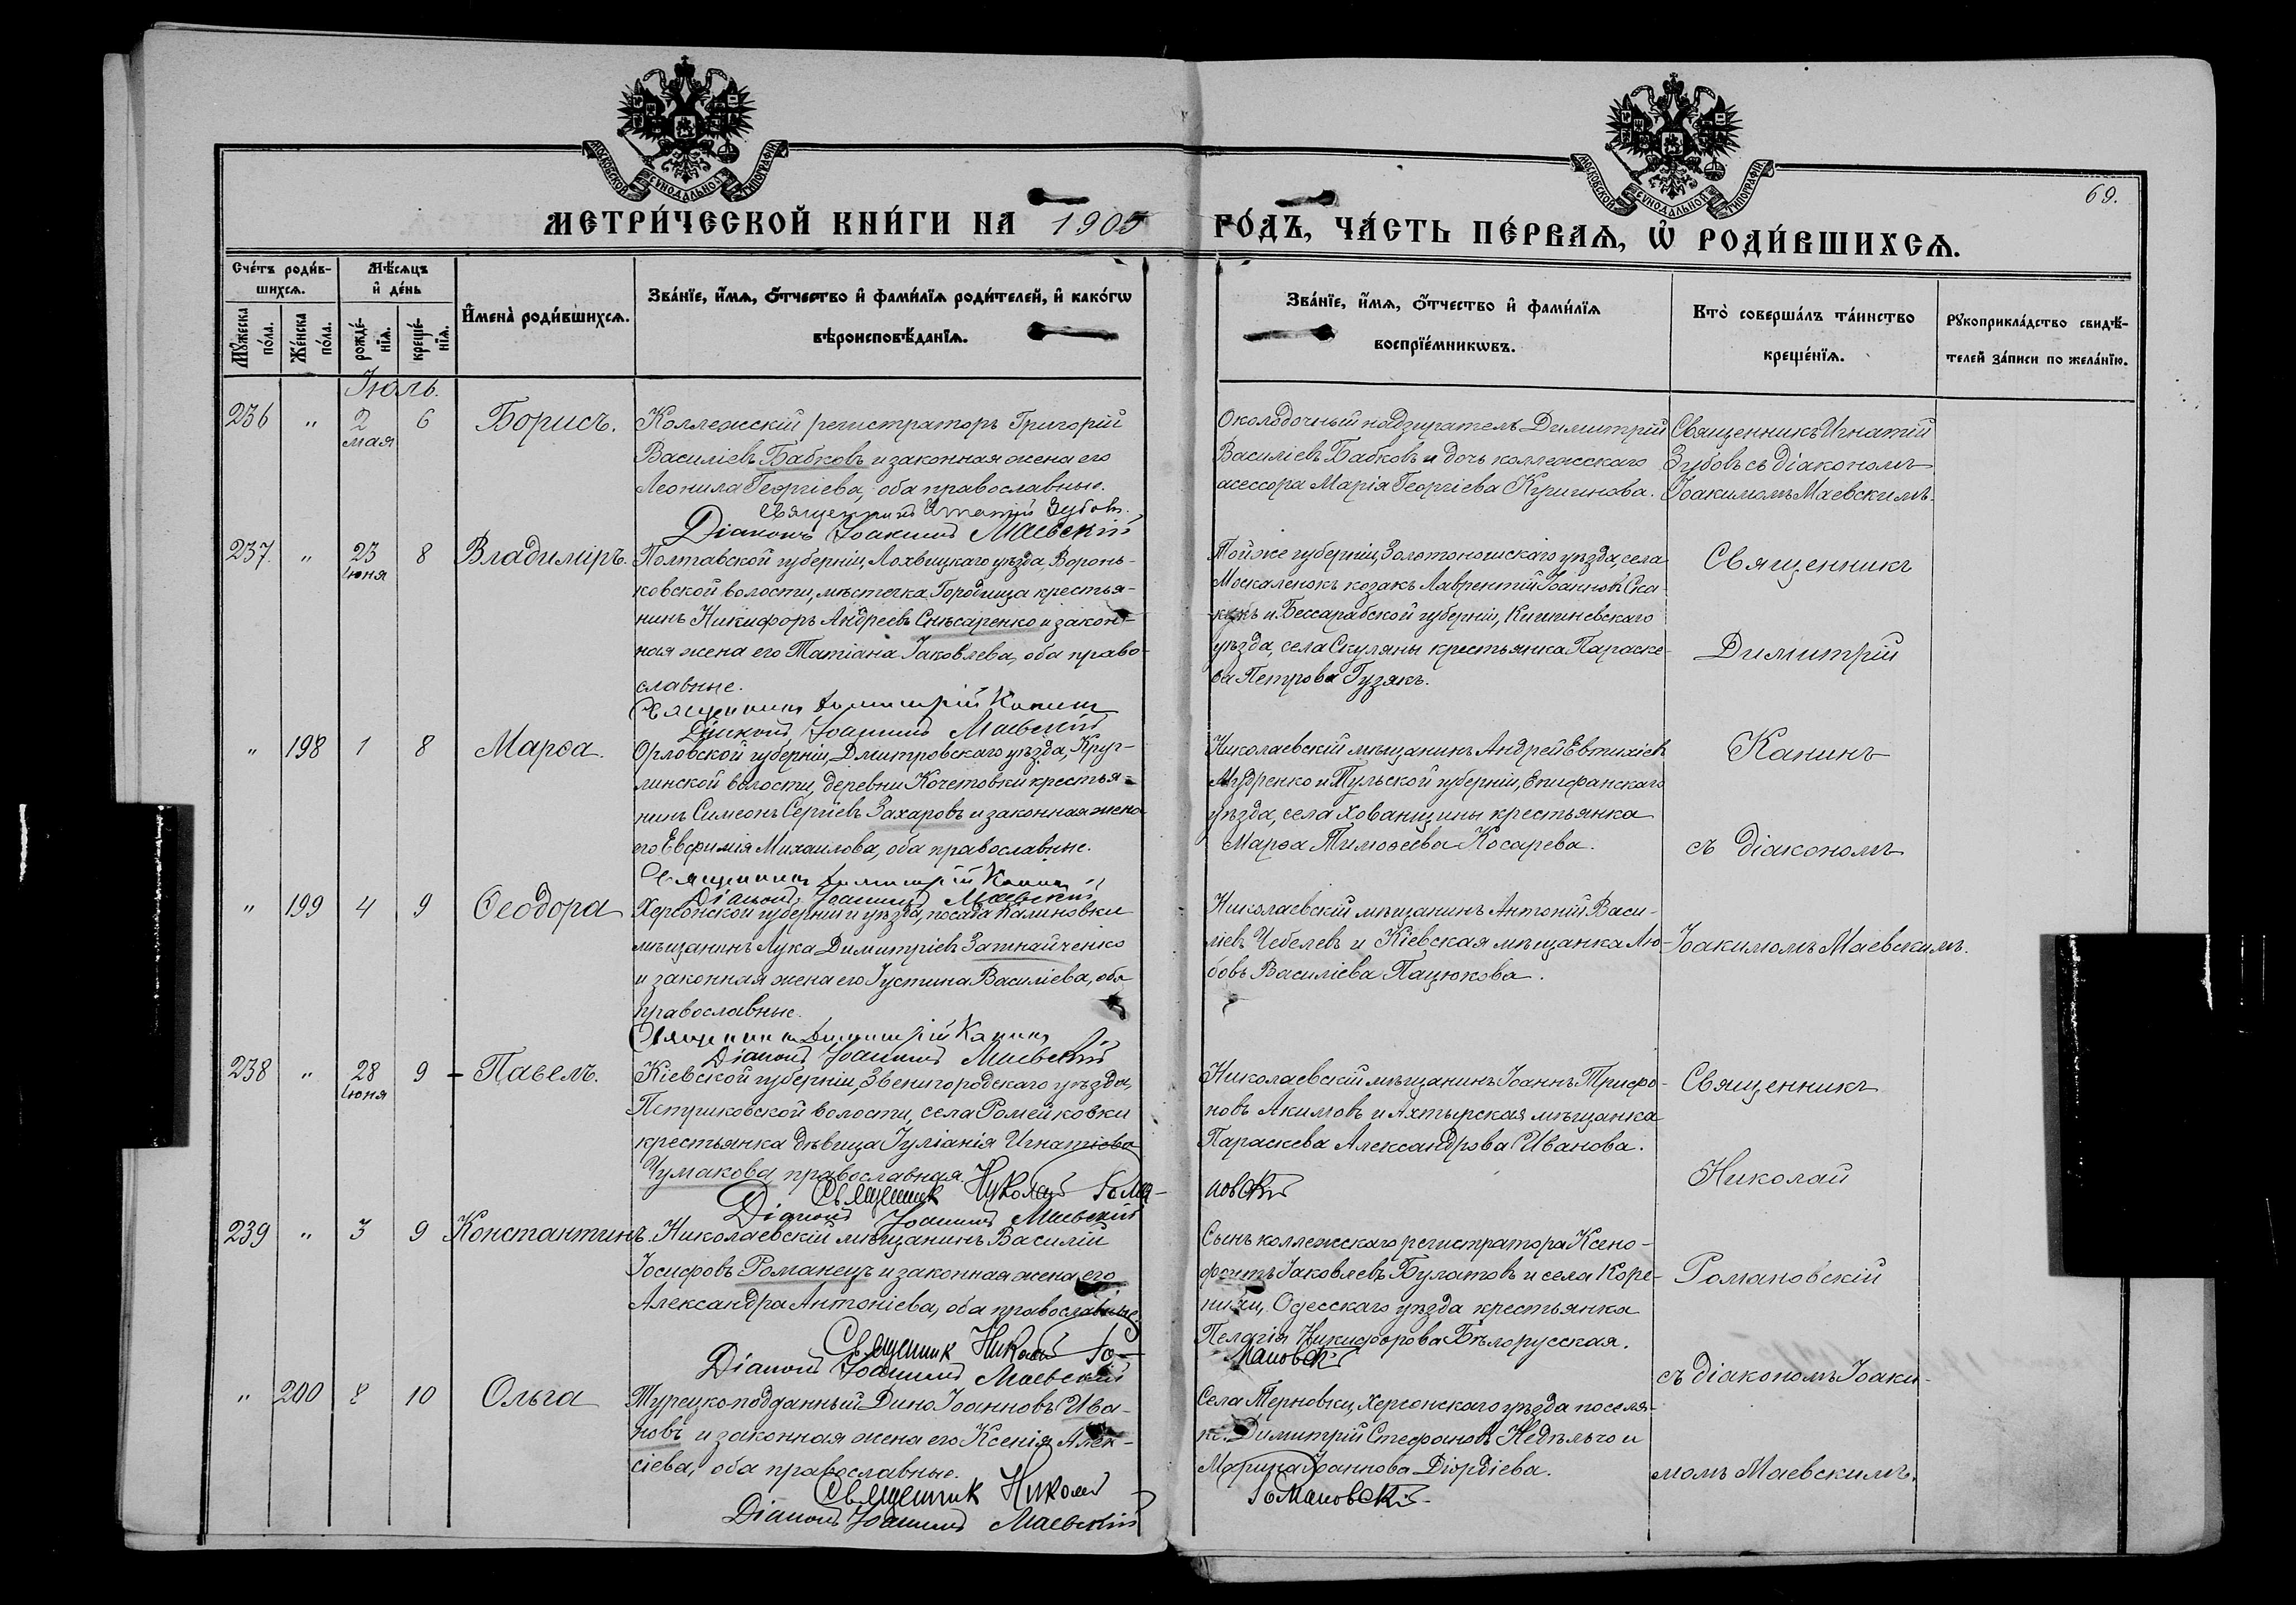 МОСКОВСКОЙ СѴНОДАЛЬНОЙ ТИПОГРАФІИ
МОСКОВСКОЙ СѴНОДАЛЬНОЙ ТИПОГРАФІИ
69.
МЕТРИ́ЧЕСКОЙ КНИ́ГИ НА 1905 ГО́ДЪ, ЧА́СТЬ ПЕ́РВАѦ, Ѡ҆ РОДИ́ВШИХСѦ.
Сче́тъ роди́в-
шихсѧ.
Мѣ́сѧцъ
и҆ де́нь
Мꙋ́жеска по́ла.
Же́нска по́ла.
рожде́-нїѧ.
креще́-нїѧ.
И҆мена̀ роди́вшихсѧ.
Зва́нїе, и҆́мѧ, ѻ҆́тчество и҆ фами́лїѧ роди́телей, и҆ како́гѡ
вѣроисповѣ́данїѧ.
Зва́нїе, и҆́мѧ, ѻ҆́тчество и҆ фами́лїѧ
воспрїе́мникѡвъ.
Кто̀ соверша́лъ та́инство
креще́нїѧ.
Рꙋкоприкла́дство свидѣ́-
телей за́писи по жела́нїю.
Іюль.
236 " 2 мая 6 Борисъ.
Коллежскій регистраторъ Григорій
Василіевъ Бабковъ и законная жена его
Леонила Георгіева, оба православные.
Священникъ Игнатій Зубовъ.
Діаконъ Іоакимъ Маевскій
Околодочный надзиратель Димитрій
Василіевъ Бабковъ и дочь коллежскаго
асессора Марія Георгіева
Священникъ Игнатій
Зубовъ съ діакономъ
Іоакимомъ Маевскимъ.
237. " 23 іюня 8 Владиміръ.
Полтавской губерніи, Лохвицкаго уѣзда, Воронь-
ковской волости, мѣстечка Городища крестья-
нинъ Никифоръ Андреевъ Снѣсаренко и закон-
ная жена его Татіана Іаковлева, оба право-
славные.
Священникъ Димитрій Канинъ
Діаконъ Іоакимъ Маевскій
Той же губерніи, Золотоношскаго уѣзда, села
Москаленокъ козакъ Лаврентій Іоанновъ Ска-
и Бессарабской губерніи, Кишиневскаго
уѣзда, села Скуляны крестьянка Параске-
ва Петрова Гузякъ.
Священникъ
Димитрій
" 198 1 8 Марѳа.
Орловской губерніи, Дмитровскаго уѣзда, Круг-
линской волости, деревни Кочетовки крестья-
нинъ Симеонъ Сергіевъ Захаровъ и законная жена
его Евфимія Михаилова, оба православные.
Священникъ Димитрій Канинъ
Діаконъ Іоакимъ Маевскій
Николаевскій мѣщанинъ Андрей Евтихіевъ
Мудренко и Тульской губерніи, Епифанскаго
уѣзда, села Хованщины крестьянка
Марѳа Тимоѳеева Косарева.
Канинъ
съ діакономъ
" 199 4 9 Ѳеодора
Херсонской губерніи и уѣзда, посада Калиновки
мѣщанинъ Лука Димитріевъ Затнайченко
и законная жена его Іустина Василіева, оба
православные.
Священникъ Димитрій Канинъ
Діаконъ Іоакимъ Маевскій
Николаевскій мѣщанинъ Антоній Васи-
ліевъ Чебелевъ и Кіевская мѣщанка Лю-
бовь Василіева Пацюкова.
Іоакимомъ Маевскимъ.
238 " 28 іюня 9 Павелъ.
Кіевской губерніи, Звенигородскаго уѣзда,
Петриковской волости, села Ромейковки
крестьянка дѣвица Іуліанія Игнатіева
Чумакова, православная.
Священникъ Николай Рома-
новскій
Діаконъ Іоакимъ Маевскій
Николаевскій мѣщанинъ Іоаннъ Трифо-
новъ Акимовъ и Ахтырская мѣщанка
Параскева Александрова Иванова.
Священникъ
Николай
239 " 3 9 Константинъ.
Николаевскій мѣщанинъ Василій
Іосифовъ Романецъ и законная жена его
Александра Антоніева, оба православные.
Священникъ Николай Ро-
мановскій
Діаконъ Іоакимъ Маевскій
Сынъ коллежскаго регистратора Ксено-
фонтъ Іаковлевъ Булатовъ и села Коре-
нихи, Одесскаго уѣзда крестьянка
Пелагія Никифорова Бѣлорусская.
Романовскій
съ діакономъ Іоаки-
" 200 8 10 Ольга
Турецкоподданный Дино Іоанновъ Ива-
новъ и законная жена его Ксенія Алек-
сіева, оба православные.
Священникъ Николай
Романовскій
Діаконъ Іоакимъ Маевскій
Села Терновки, Херсонскаго уѣзда поселя-
не: Димитрій Стефановъ Недѣльчо и
Марина Іоаннова Діордіева.
момъ Маевскимъ.